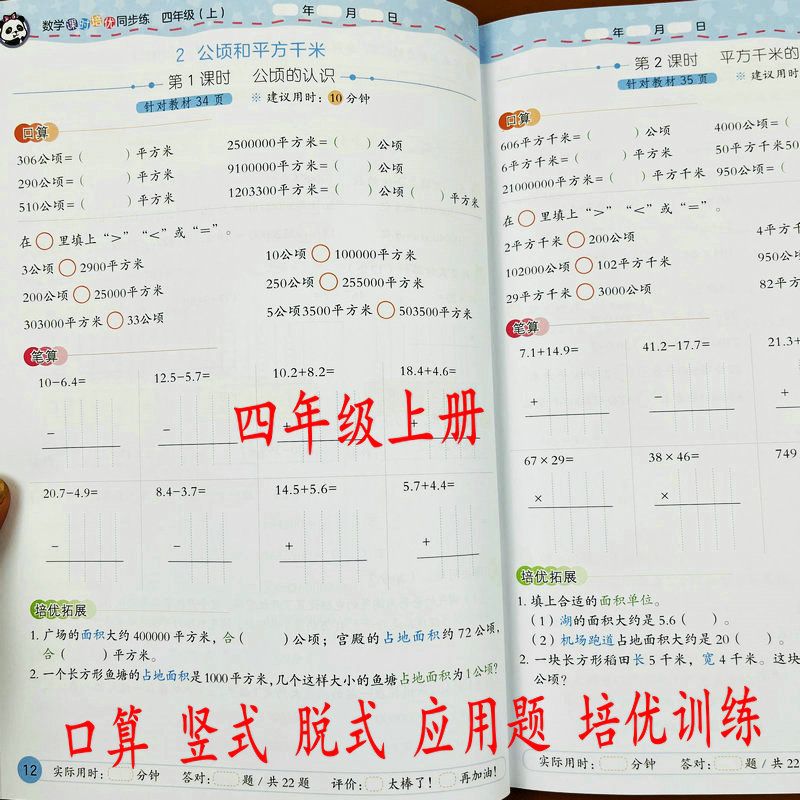 数学课时培优同步练 四年级（上）
年 月 日
2 公顷和平方千米
第1课时 公顷的认识
针对教材34页 ※ 建议用时：10分钟
口算
306公顷=（ ）平方米 2500000平方米=（ ）公顷
290公顷=（ ）平方米 9100000平方米=（ ）公顷
510公顷=（ ）平方米 1203300平方米=（ ）公顷（ ）平方米
在○里填上“>”“<”或“=”。
3公顷○2900平方米 10公顷○100000平方米
200公顷○25000平方米 250公顷○255000平方米
303000平方米○33公顷 5公顷3500平方米○503500平方米
笔算
10-6.4= 12.5-5.7= 10.2+8.2= 18.4+4.6=
- - + +
20.7-4.9= 8.4-3.7= 14.5+5.6= 5.7+4.4=
- - + +
培优拓展
1. 广场的面积大约400000平方米，合（ ）公顷；宫殿的占地面积约72公顷，
合（ ）平方米。
2. 一个长方形鱼塘的占地面积是1000平方米，几个这样大小的鱼塘占地面积为1公顷？
12 实际用时： 分钟 答对： 题/共22题 评价： 太棒了！ 再加油！
年 月 日
第2课时 平方千米的
针对教材35页 ※ 建议用时
口算
606平方千米=（ ）公顷 4000公顷=（
6平方千米=（ ）公顷 50平方千米50
21000000平方米=（ ）平方千米 950公顷=（
在○里填上“>”“<”或“=”。
2平方千米○200公顷 4平方千
102000公顷○102平方千米 950公
29平方千米○3000公顷 82平方
笔算
7.1+14.9= 41.2-17.7= 21.3+
+ -
67×29= 38×46= 749
× ×
培优拓展
1. 填上合适的面积单位。
（1）湖的面积大约是5.6（ ）。
（2）机场跑道占地面积大约是20（ ）。
2. 一块长方形稻田长5千米，宽4千米。这块
公顷？
实际用时： 分钟 答对： 题/共22
四年级上册
口算 竖式 脱式 应用题 培优训练